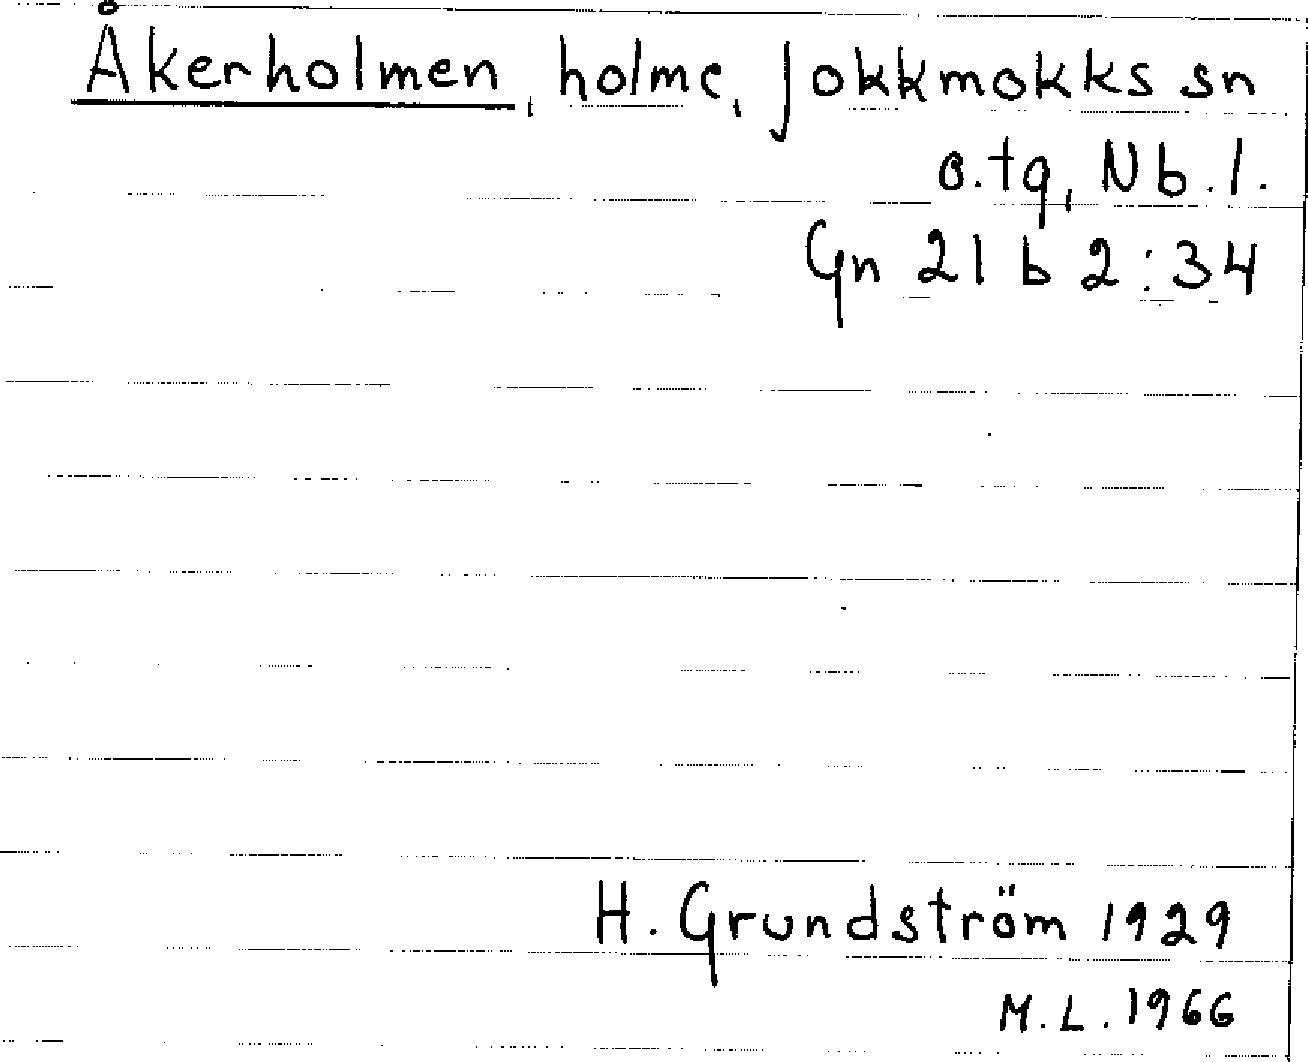 Åkerholmen, holme, Jokkmokks sn
o.tg, Nb.l.
Gn 21 b 2:34
H. Grundström 1929
M.L. 1966